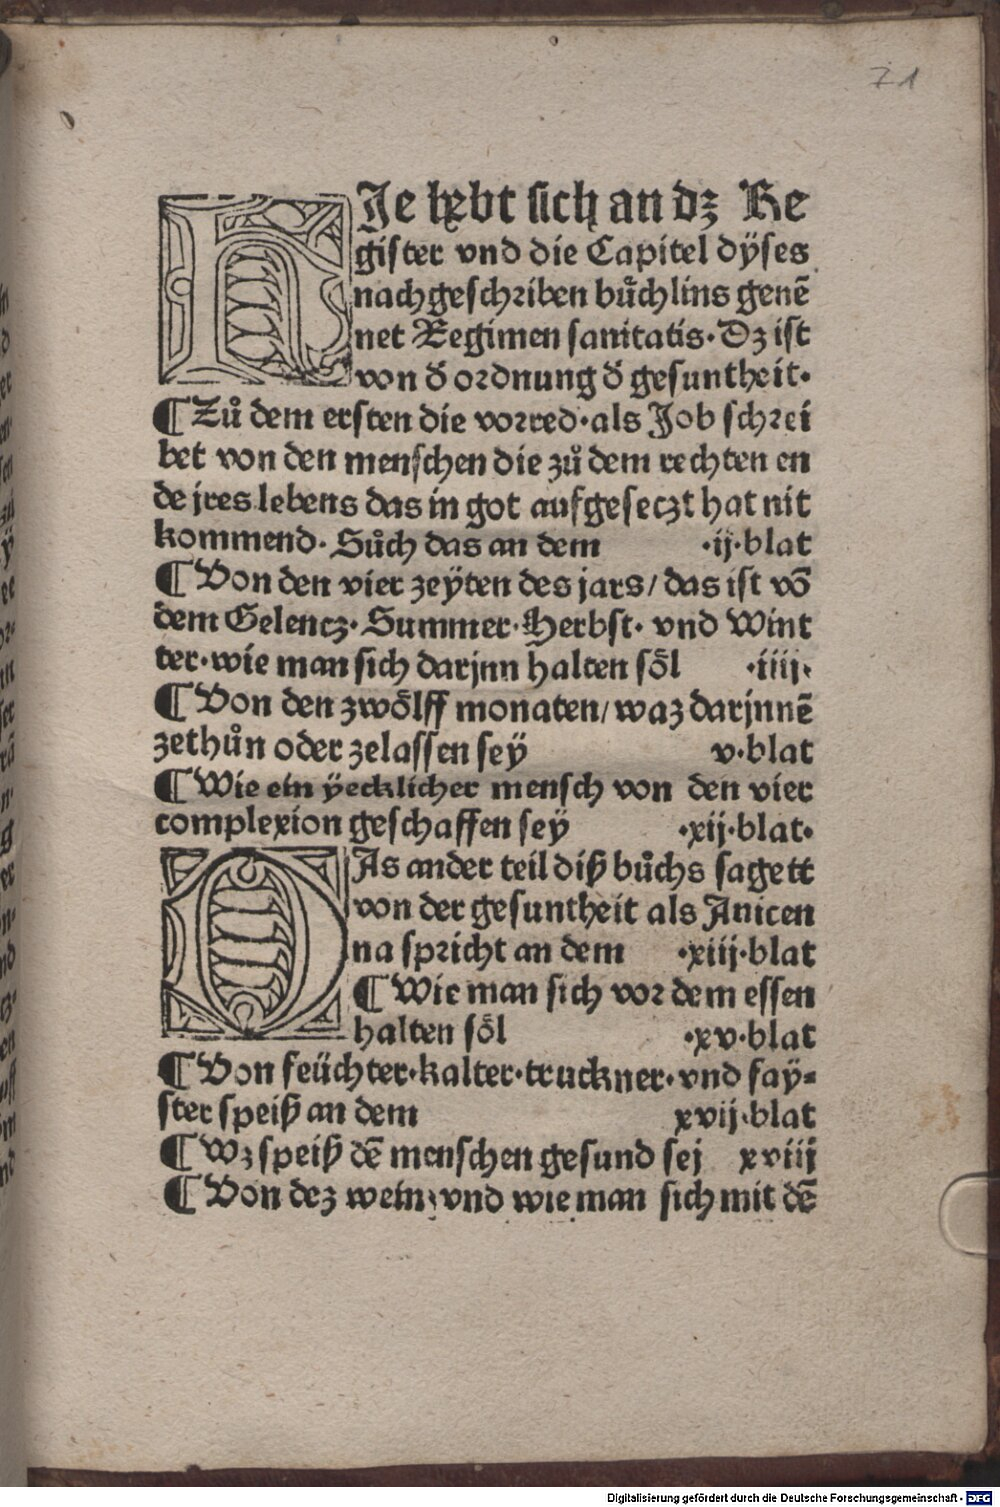 71
HJe hebt sich an dz Re
gister vnd die Capitel dÿses
nachgeschriben bůchlins genē
net Regimen sanitatis· Dz ist
von d̄ ordnung d̄ gesuntheit·
¶ Zů dem ersten die vorred·als Job schrei
bet von den menschen die zů dem rechten en
de jres lebens das in got aufgeseczt hat nit
kommend· Sůch das an dem ·ij·blat
¶ Von den vier zeÿten des jars/ das ist vō
dem Gelencz· Summer·Herbst· vnd Wint
ter·wie man sich darjnn halten söl ·iiij·
¶ Von den zwölff monaten/waz darjnnē
zethůn oder zelassen seÿ v·blat
¶ Wie ein ÿecklicher mensch von den vier
complexion geschaffen seÿ ·xij·blat·
DAs ander teil diß bůchs sagett
von der gesuntheit als Auicen
na spricht an dem ·xiij·blat
¶ Wie man sich vor dem essen
halten söl ·xv·blat
¶ Von feüchter·kalter·truckner·vnd faÿ-
ster speiß an dem xvij·blat
¶ Wz speiß dē menschen gesund sej xviij
¶ Von dez wein·vnd wie man sich mit dē
Digitalisierung gefördert durch die Deutsche Forschungsgemeinschaft - DFG